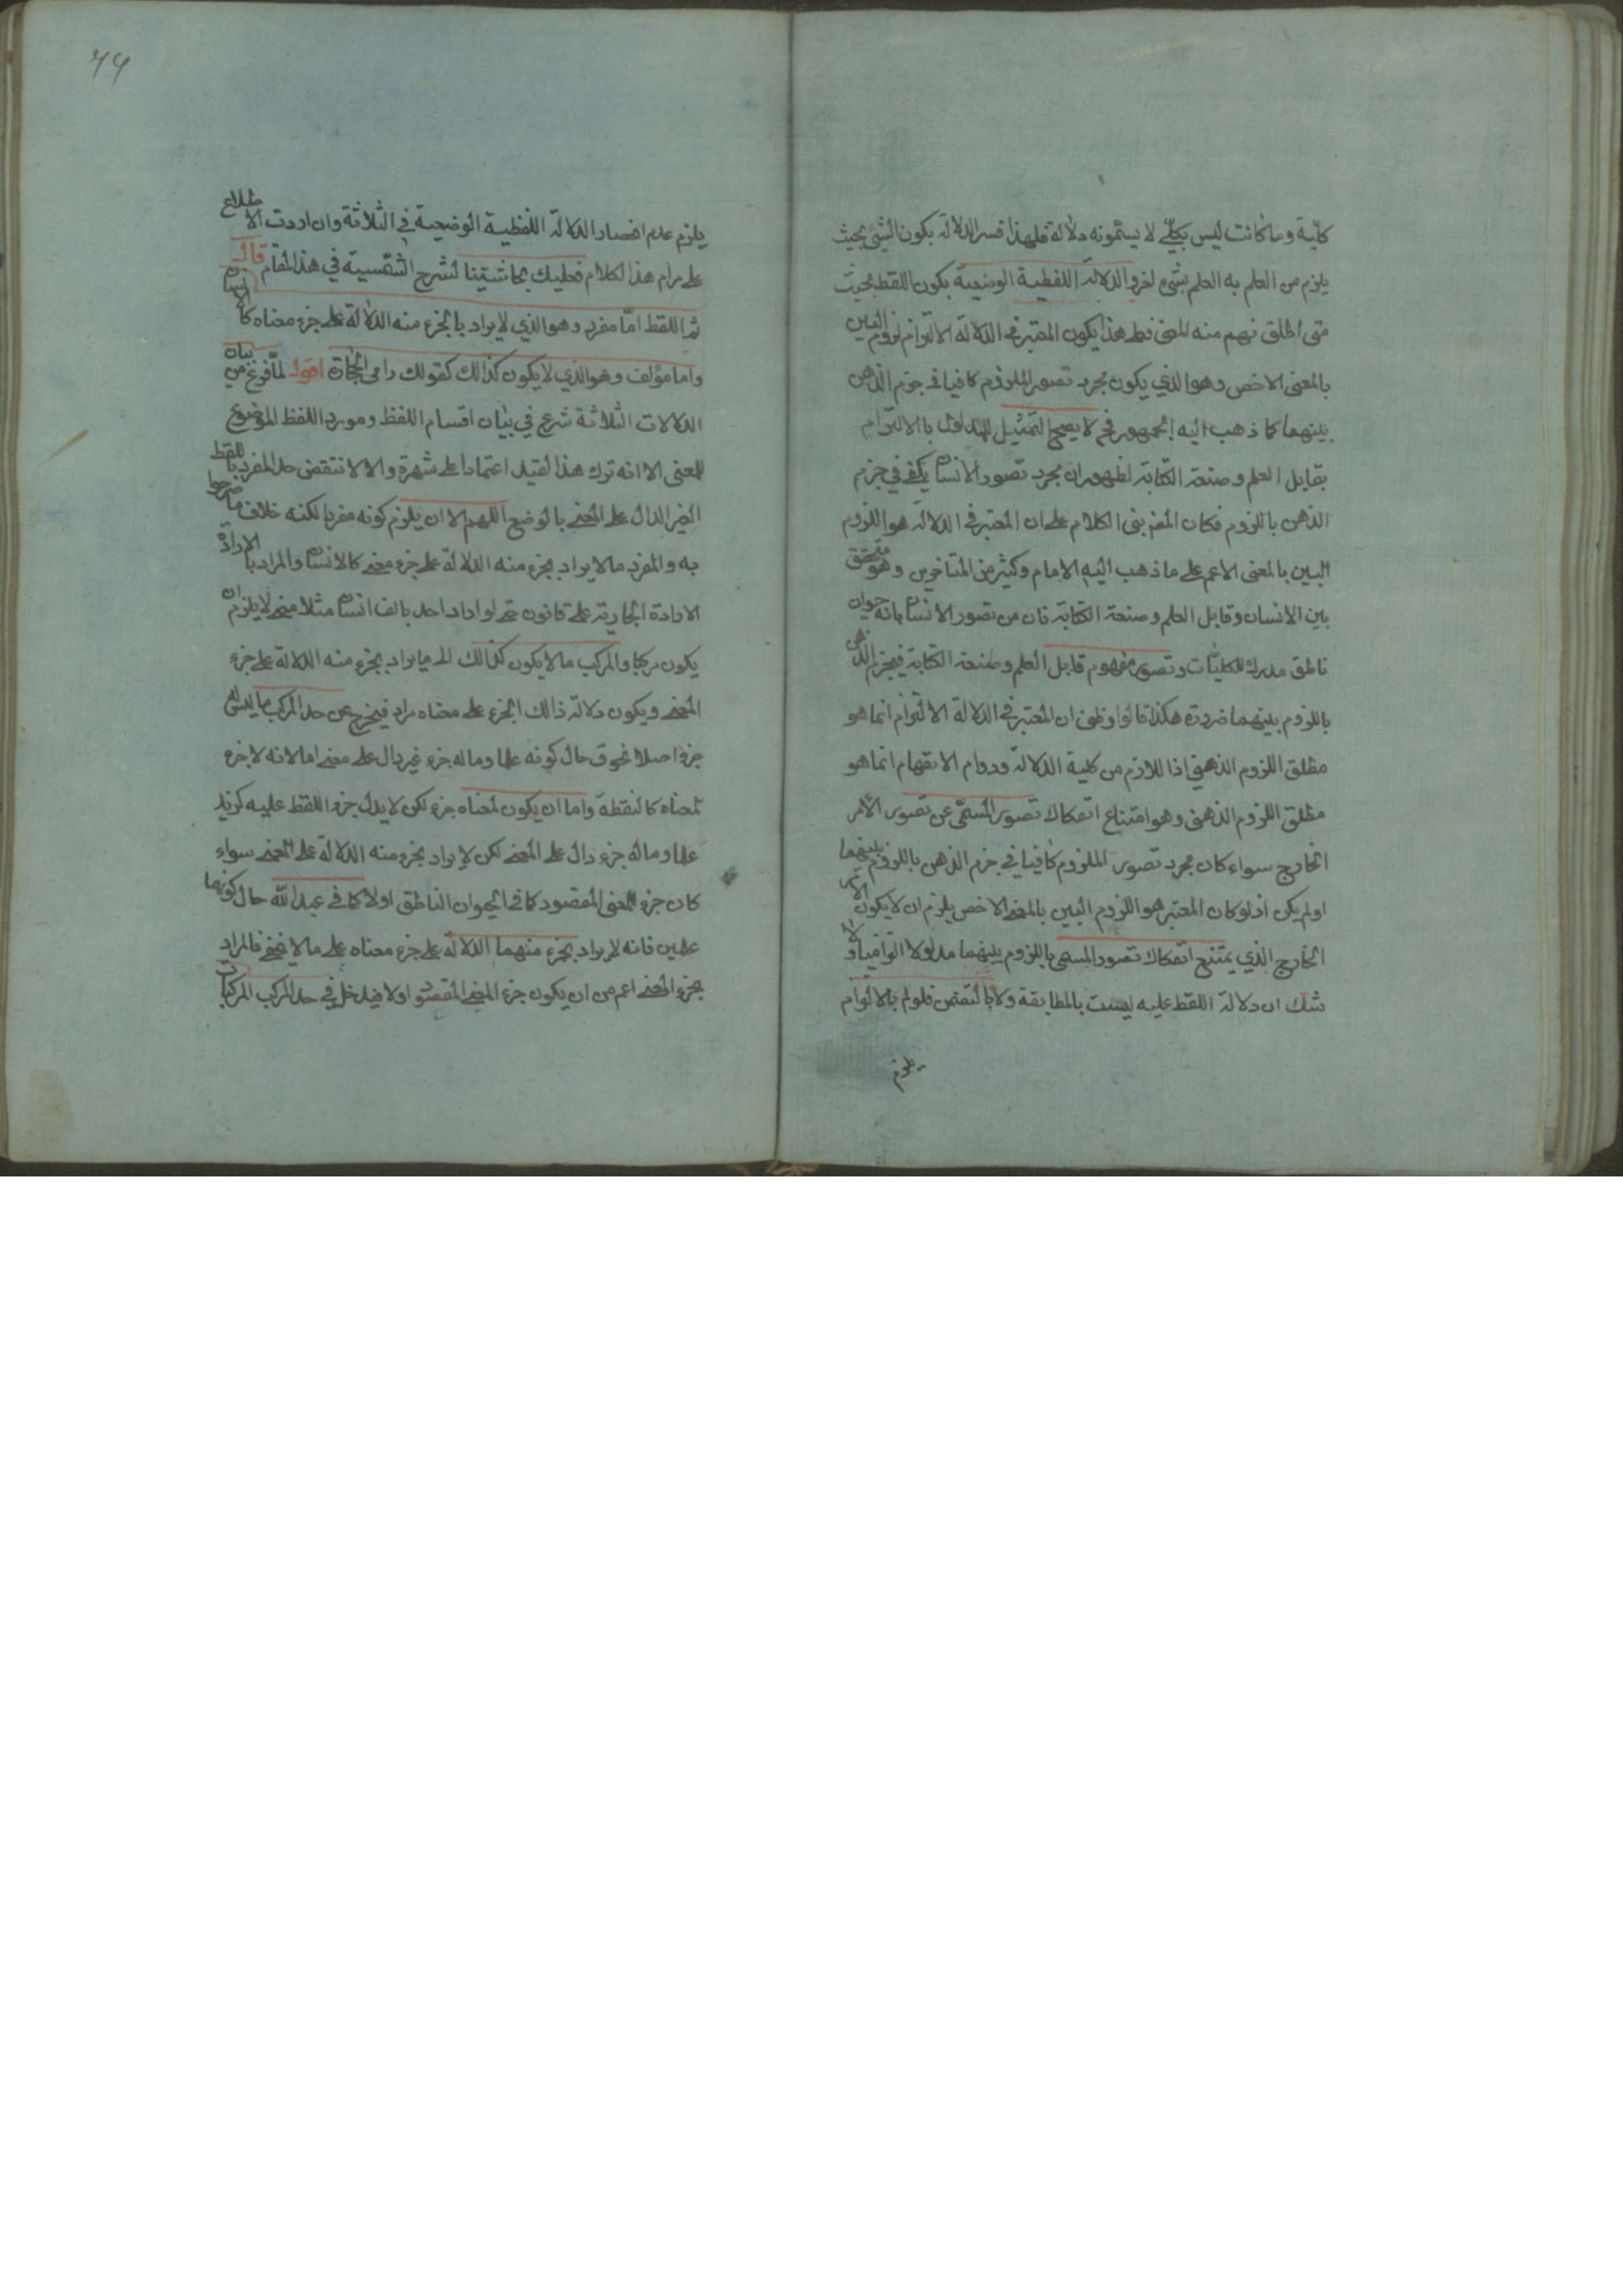 كلية وما كانت ليس بكلي لا يسمونه دلالة فلهذا فسر الدلالة بكون الشئ بحيث
يلزم من العلم به العلم بشئ اخر والدلالة اللفظية الوضعية بكون اللفظ بحيث
متى اطلق فهم منه المعنى فعلى هذا يكون المعتبر في الدلالة الالتزام لزوم البين
بالمعنى الاخص وهو الذي يكون مجرد تصور الملزوم كافيا في جزم الذهن
بينهما كما ذهب اليه الجمهور فح لا يصح التمثيل للمدلول بالالتزام
بقابل العلم وصنعة الكتابة لظهور ان مجرد تصور الانسان يكفي في جزم
الذهن باللزوم فكان المص بنى الكلام على ان المعتبر في الدلالة هو اللزوم
البين بالمعنى الاعم على ما ذهب اليه الامام وكثير من المتاخرين وهو متحقق
بين الانسان وقابل العلم وصنعة الكتابة فان من تصور الانسان بانه حيوان
ناطق مدرك للكليات وتصور مفهوم قابل العلم وصنعة الكتابة فيجزم الذهن
باللزوم بينهما ضرورة هكذا قالوا وظني ان المعتبر في الدلالة الالتزام انما هو
مطلق اللزوم الذهني اذا للازم من كلية الدلالة ودوام الانفهام انما هو
مطلق اللزوم الذهني وهو امتناع انفكاك تصور المسمى عن تصور الامر
الخارج سواء كان مجرد تصور الملزوم كافيا في جزم الذهن باللزوم بينهما
اولم يكن اذ لو كان المعتبر هو اللزوم البين بالمعنى الاخص يلزم ان لا يكون الامر
الخارج الذي يمتنع انفكاك تصور المسمى باللزوم بينهما مدلولا التزاميا ولا
شك ان دلالة اللفظ عليه ليست بالمطابقة ولا بالتضمن فلو لم بالالتزام
يلزم
٦٩
يلزم عدم انحصار الدلالة اللفظية الوضعية في الثلاثة وان اردت الاطلاع
على مرام هذا الكلام فعليك بحاشيتنا لشرح الشمسية في هذا المقام قال
ثم اللفظ اما مفرد وهو الذي لا يراد بالجزء منه الدلالة على جزء معناه كالانسان
واما مؤلف وهو الذي لا يكون كذالك كقولك رامي الحجارة اقول لما فرغ من بيان
الدلالات الثلاثة شرع في بيان اقسام اللفظ ومورد اللفظ الموضوع
للمعنى الا انه ترك هذا لقيد اعتمادا على شهرة والا لانتقض حد المفرد باللفظ
الغير الدال على المعنى بالوضع اللهم الا ان يلزم كونه مفردا لكنه خلاف ما صرحوا
به والمفرد ما لا يراد بجزء منه الدلالة على جزء معنى كالانسان والمراد بالارادة
الارادة الجارية على قانون حتى لو اراد احد بالف انسان مثلا معنى لا يلزم ان
يكون مركبا والمركب ما لا يكون كذالك اي ما يراد بجزء منه الدلالة على جزء
المعنى ويكون دلالة ذالك الجزء على معناه مراد فيخرج عن حد المركب ما ليس له
جزء اصلا نحو ق حال كونه علما وما له جزء غير دال على معنى اما لانه لا جزء
لمعناه كالنقطة واما ان يكون لمعناه جزء لكن لا يدل جزء اللفظ عليه كزيد
علما وماله جزء دال على المعنى لكن لا يراد بجزء منه الدلالة على المعنى سواء
كان جزء المعنى المقصود كما في الحيوان الناطق اولا كما في عبد الله حال كونهما
علمين فانه لم يراد بجزء منهما الدلالة على جزء معناه على ما لا يخفى فالمراد
بجزء المعنى اعم من ان يكون جزء المعنى المقصود اولا فيدخل في حد المركب المركبات